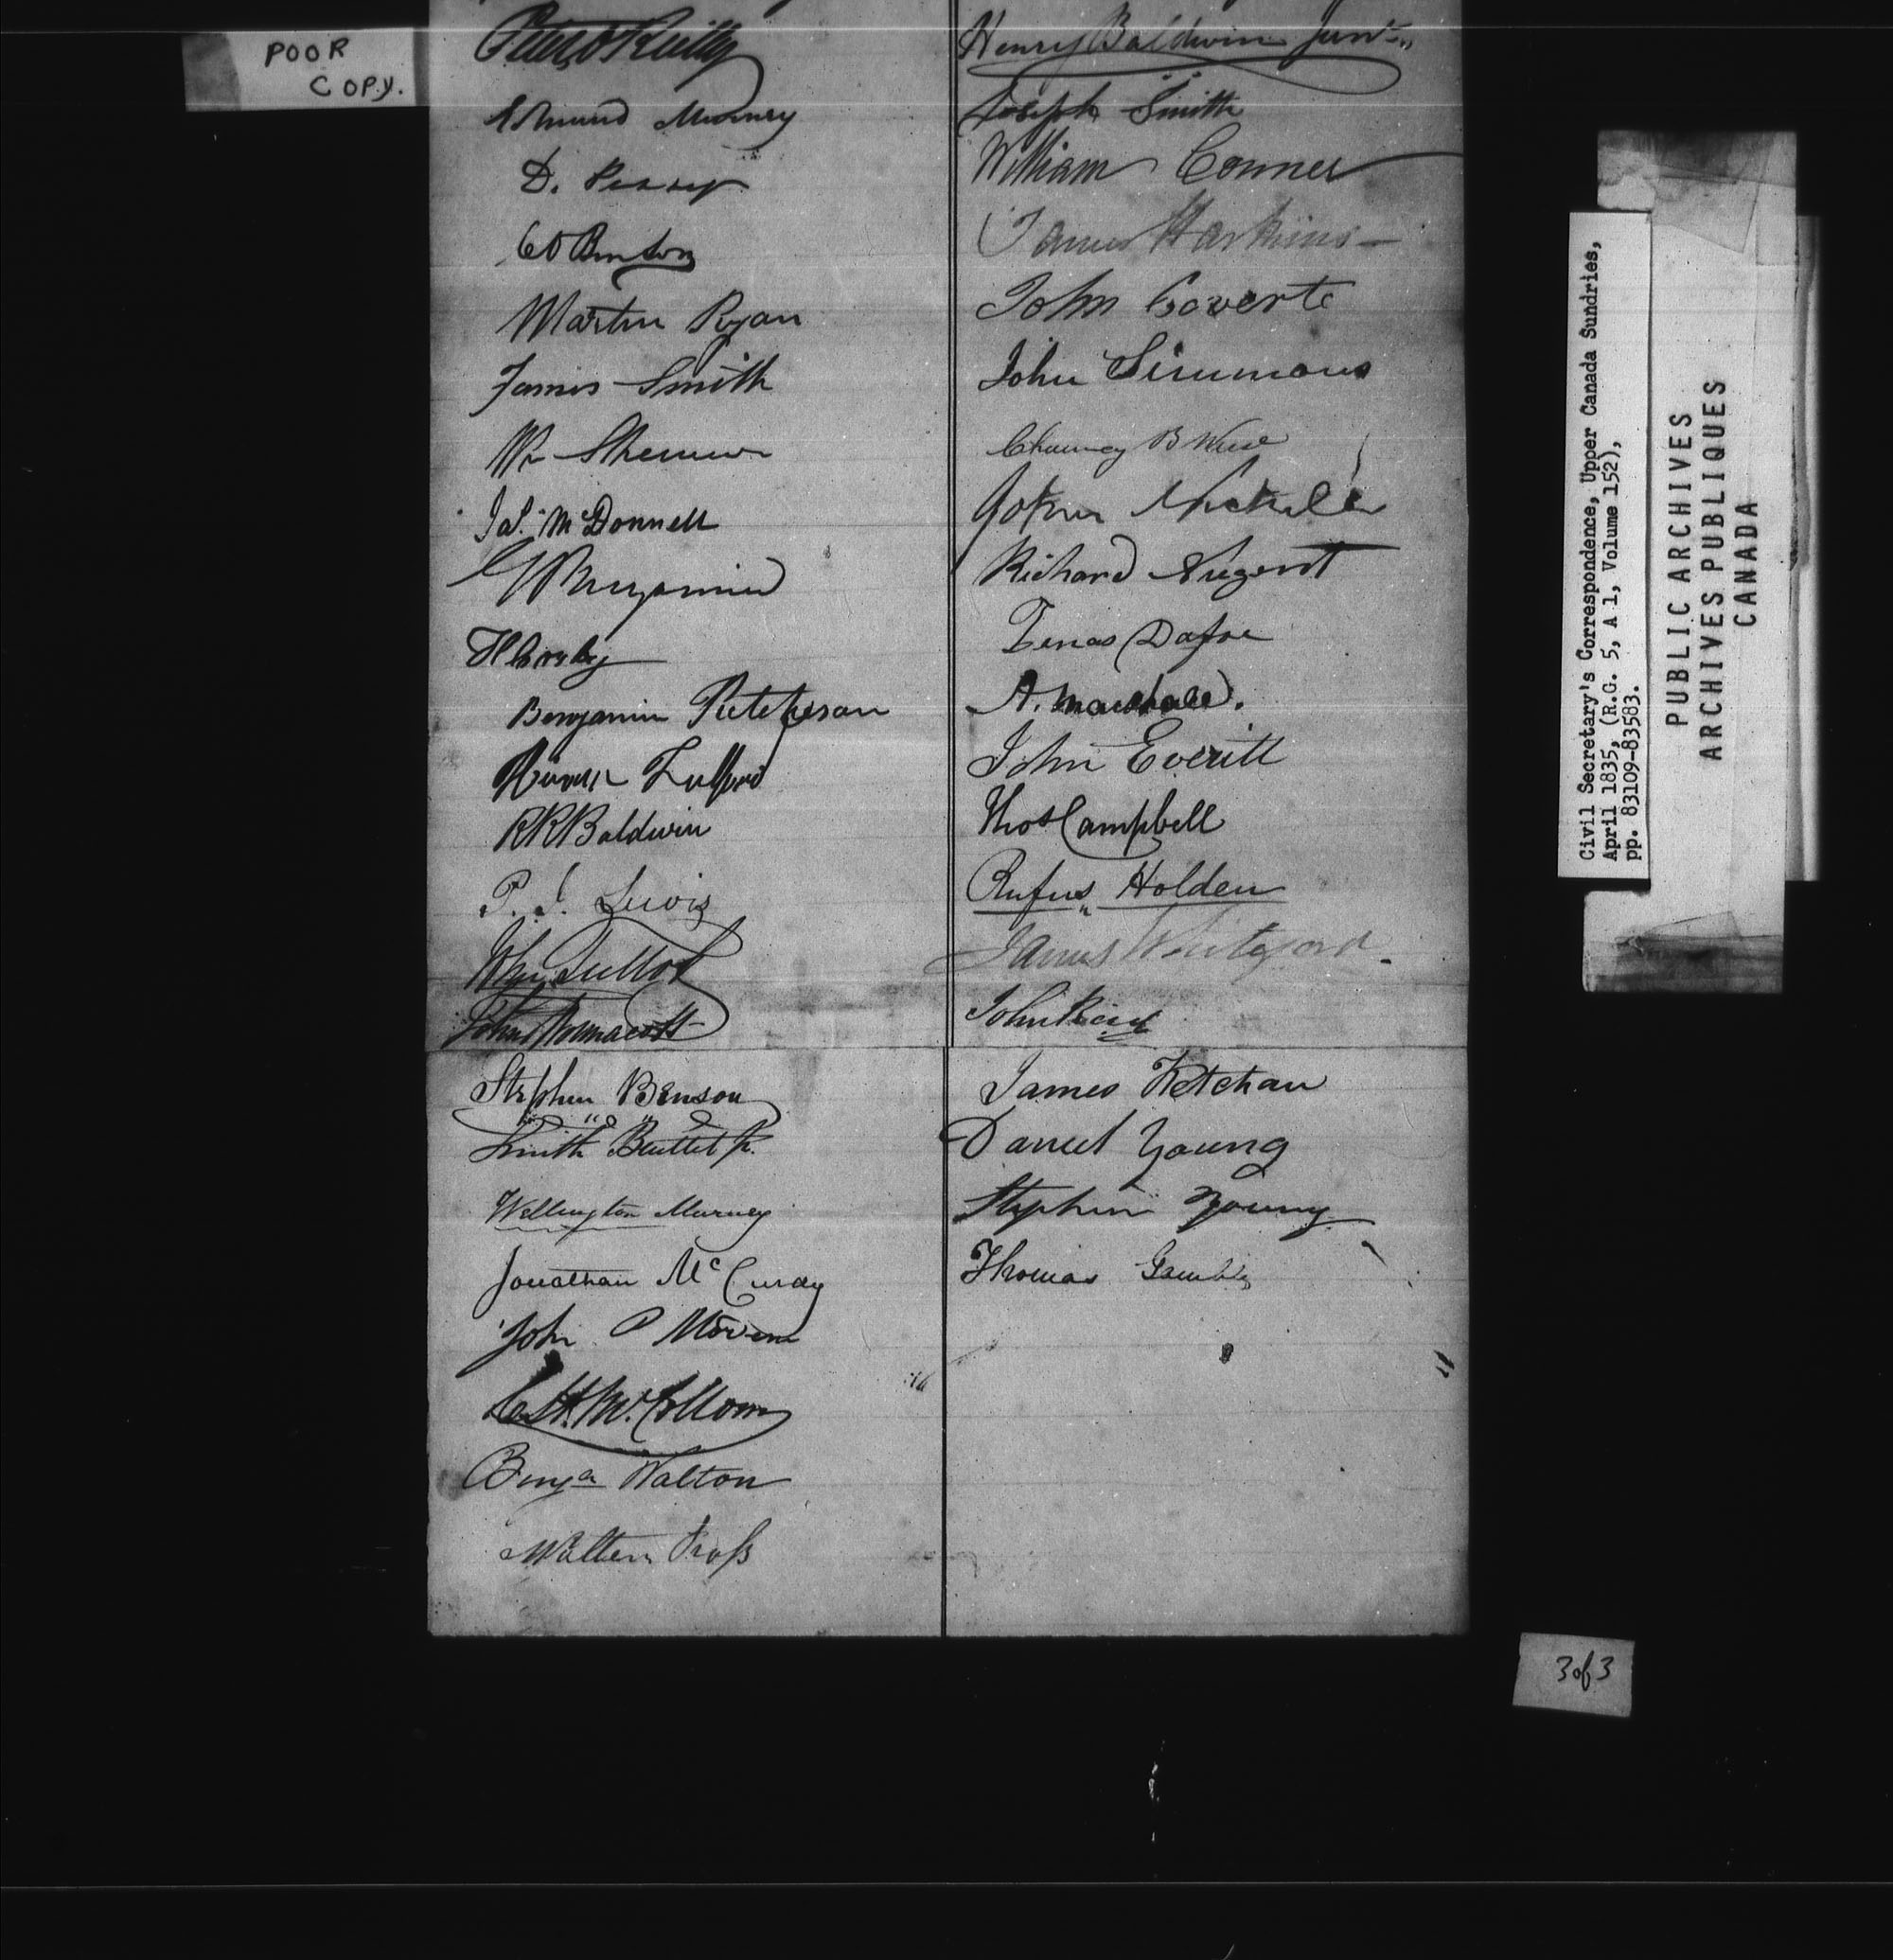 POOR
COPY.
Peter O Reilly
Edmund Murney
D. Perry
Benton
Martin Ryan
James Smith
Wm
Jas. McDonnell
G Benjamin
H Corby
Benjamin Ritcheson
Hiram Fulford
R R Baldwin
P. J. Lewis
John Turnbull
John Bonnacott
Stephen Benson
Smith Bartlet Jr.
Wellington Murney
Jonathan McCurdy
John P
McCollom
Benjn Walton
Walter Ross
Henry Baldwin Junr
Joseph Smith
William Conner
James Harkins
John Coverte
John Simmons
Chauncy B
John Nickile
Richard Nugent
Zenas Dafoe
A. Marshall.
John Everitt
Thos Campbell
Rufus Holden
James Whiteford.
John
James Ketchan
Daniel Young
Stephen Young
Thomas
Civil Secretary's Correspondence, Upper Canada Sundries,
April 1835, (R.G. 5, A 1, Volume 152),
pp. 83109-83583.
PUBLIC ARCHIVES
ARCHIVES PUBLIQUES
CANADA
3 of 3